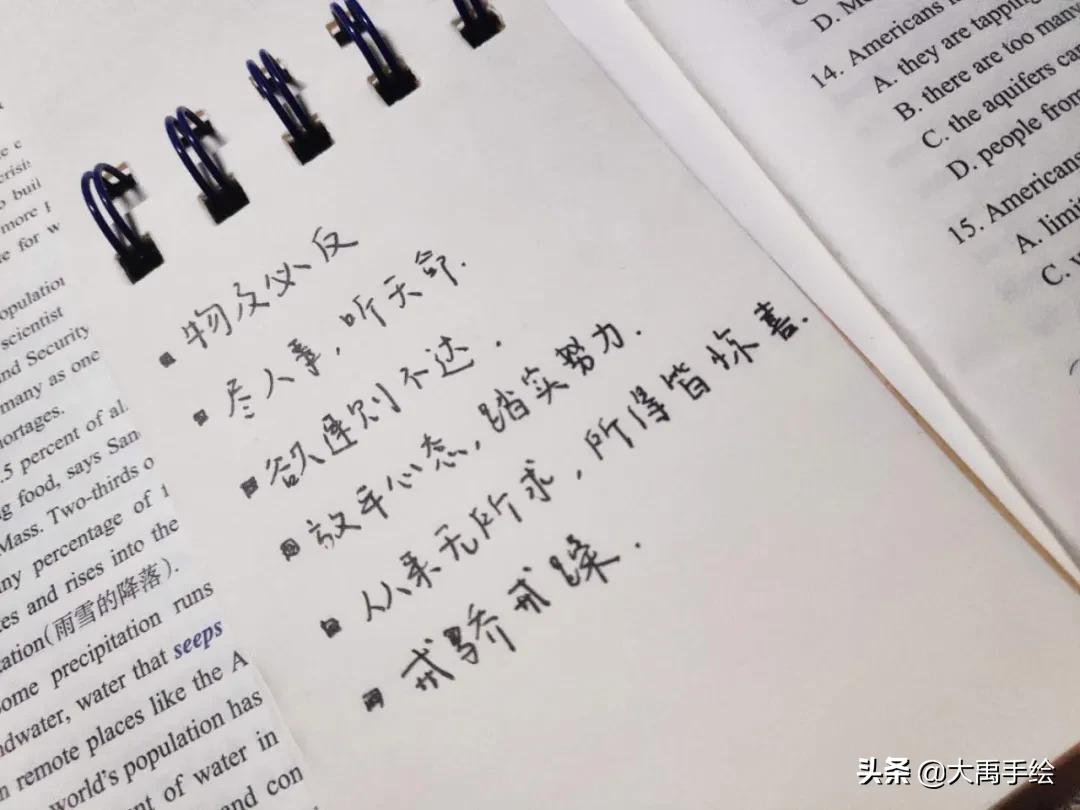 物及必反
尽人事，听天命.
欲速则不达.
放平心态，踏实努力.
从来无所求，所得皆惊喜.
戒骄戒躁.
more
e for w
opulation
scientist
nd Security
many as one
ortages.
.5 percent of al
g food, says San
Mass. Two-thirds o
ny percentage of
tes and rises into the
tation(雨雪的降落).
ome precipitation runs
ndwater, water that seeps
n remote places like the A
world's population has
nt of water in
and con
14. Americans
A. they are tapping
B. there are too many
C. the aquifers can
D. people from
15. Americans
A. limit
C.
头条 @大禹手绘